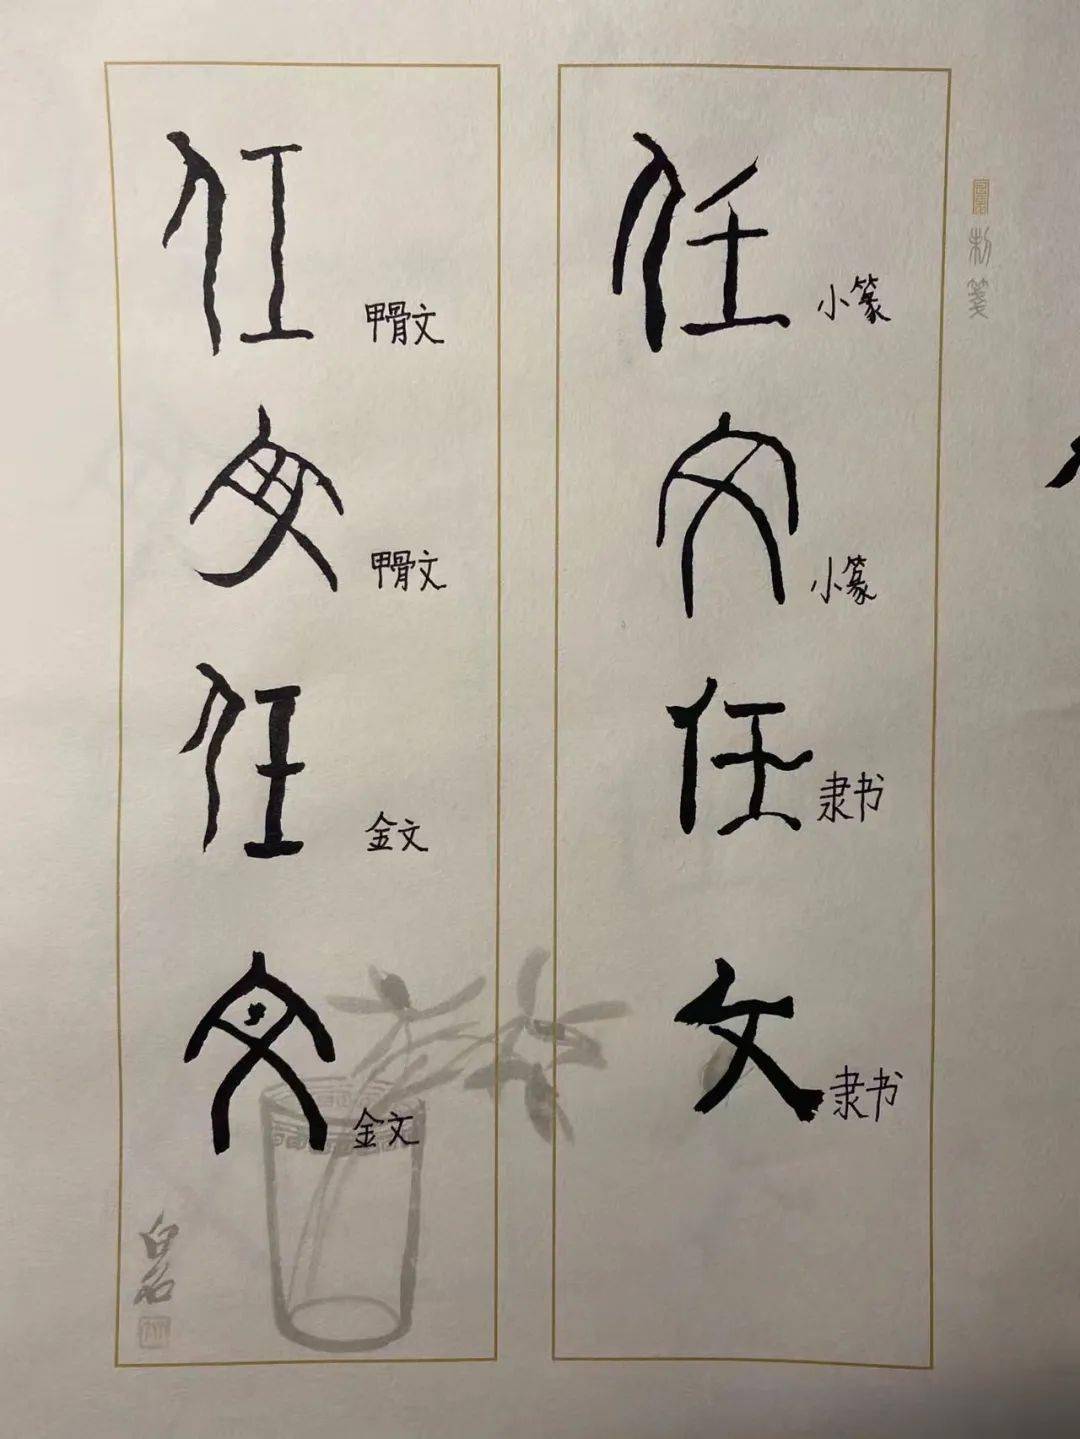 任
甲骨文
文
甲骨文
任
金文
文
金文
任
小篆
文
小篆
任
隶书
文
隶书
白石
制笺